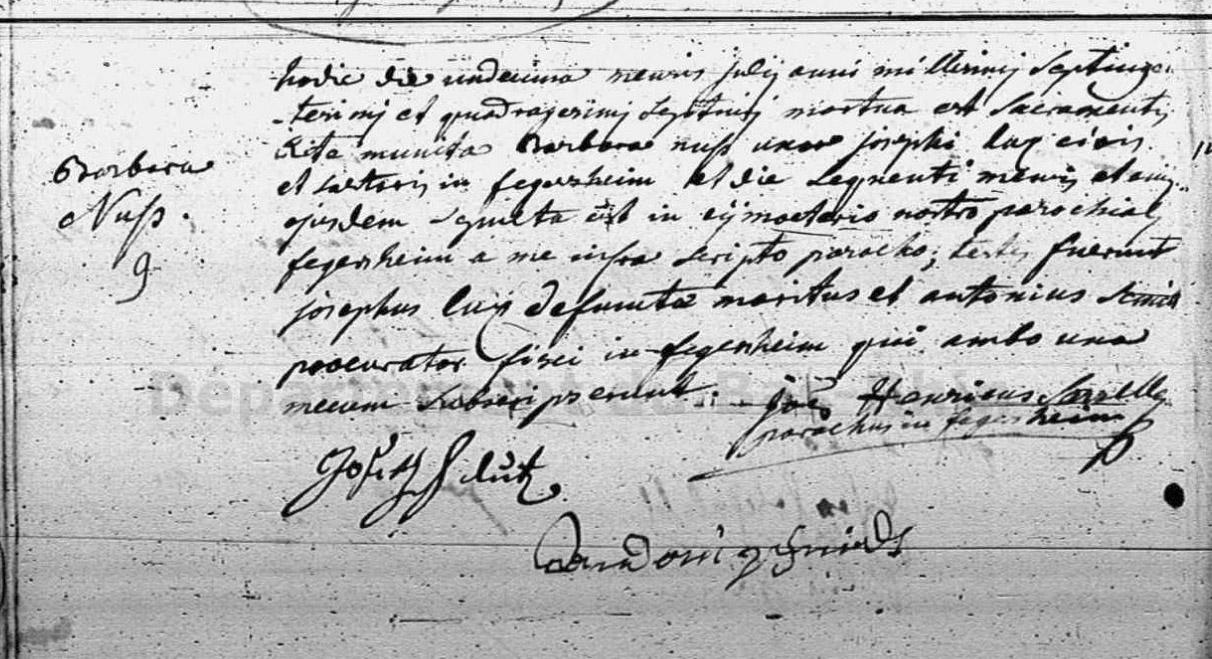 hodie die undecima mensis july anni millesimi septinge
-tesimj et quadragesimj septimj mortua est sacramentis
Rite munita Barbara nuß uxor josephi lux civis
Barbara
Nuß.
9
et sartoris in fegersheim et die sequenti mensis et anj
ejusdem sepulta est in cymoeterio nostro parochialj
fegersheim a me infra scripto parocho; testes fuerunt
josephus lux defunctae maritus et antonius
procurator fisci in fegersheim qui ambo una
mecum subscripserunt.
joes Henricus
parochus in fegersheim